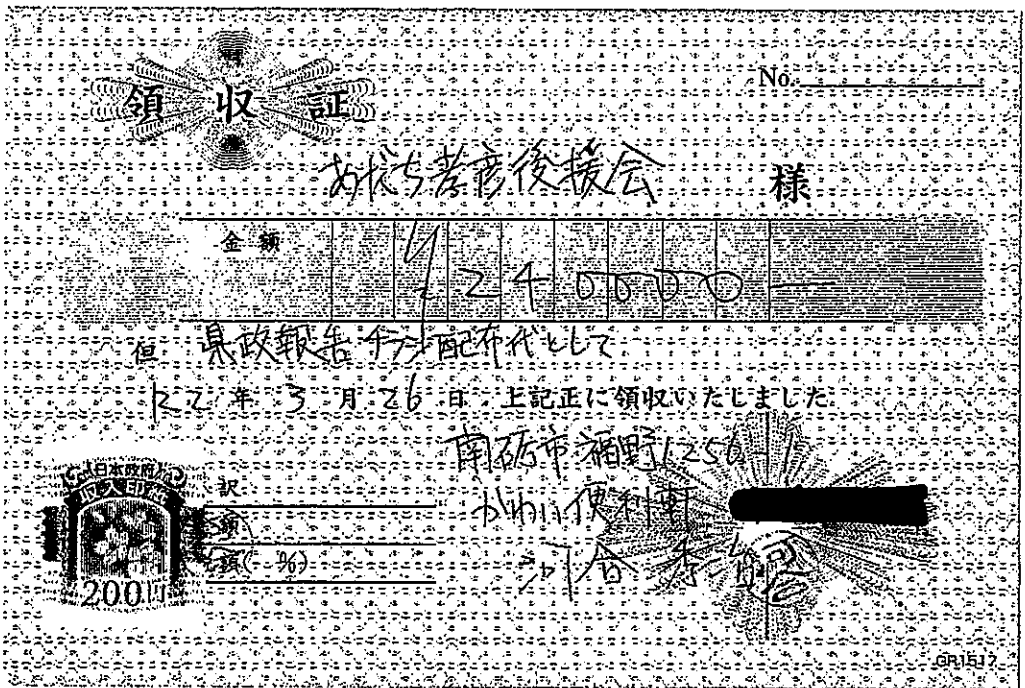 領収証
No.
あだち孝彦後援会 様
金額
¥240000 —
但 県政報告チラシ配布代として
H22年3月26日 上記正に領収いたしました
南砺市福野1256-1
かわい便利軒
河合 秀
日本政府
収入印紙
200円
訳
額
額( %)
GR1517